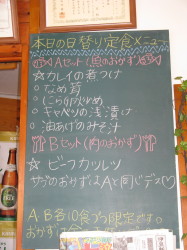 本日の日替り定食メニュー
Aセット(魚のおかず)
☆カレイの煮つけ
○なめ茸
○にら卵炒め
○キャベツの浅漬け
○油あげのみそ汁
Bセット(肉のおかず)
☆ビーフカツレツ
サブのおかずはAと同じデス♡
AB各10食づつ限定です。